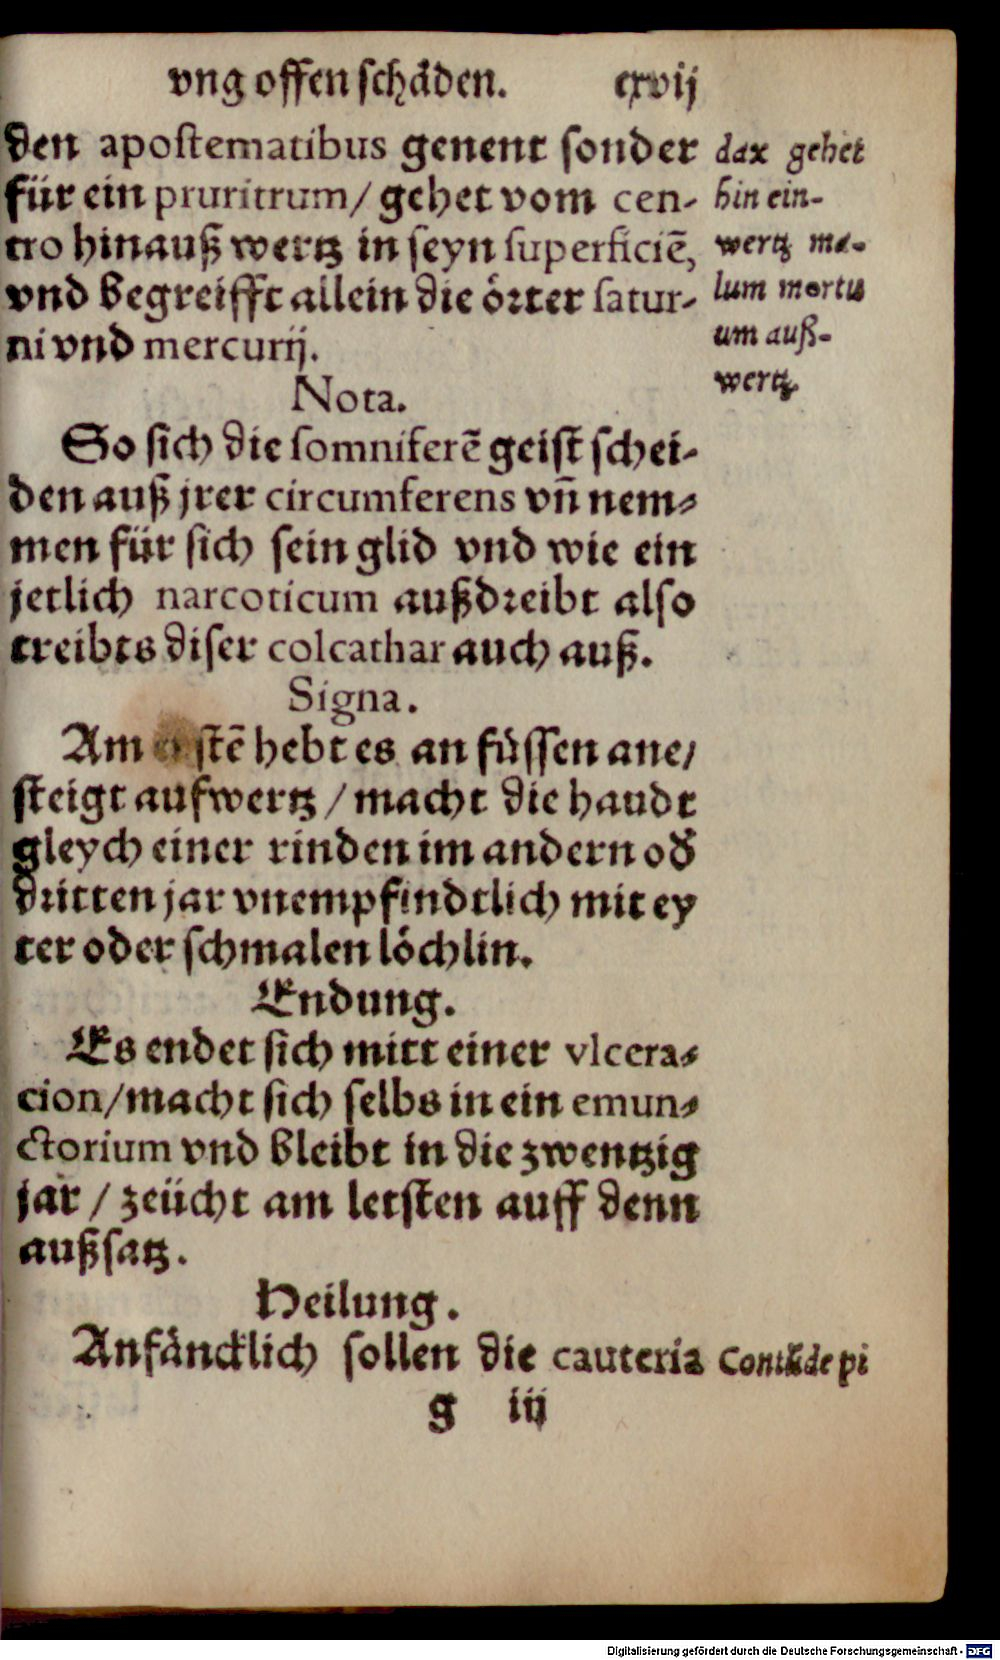 vng offen schäden. cxvij
den apostematibus genent sonder
für ein pruritrum/ gehet vom cen-
tro hinauß wertz in seyn superficiē,
vnd begreifft allein die örter satur-
ni vnd mercurij.
dax gehet
hin ein-
wertz ma-
lum mortu
um auß-
wertz.
Nota.
So sich die somniferē geist schei-
den auß jrer circumferens vn̄ nem-
men für sich sein glid vnd wie ein
jetlich narcoticum außdreibt also
treibts diser colcathar auch auß.
Signa.
Am erstē hebt es an füssen ane/
steigt aufwertz / macht die haudt
gleych einer rinden im andern od
dritten jar vnempfindtlich mit ey
ter oder schmalen löchlin.
Endung.
Es endet sich mitt einer vlcera-
cion/macht sich selbs in ein emun-
ctorium vnd bleibt in die zwentzig
jar / zeücht am letsten auff denn
außsatz.
Heilung.
Anfäncklich sollen die cauteria
de pi
g iij
Digitalisierung gefördert durch die Deutsche Forschungsgemeinschaft - DFG